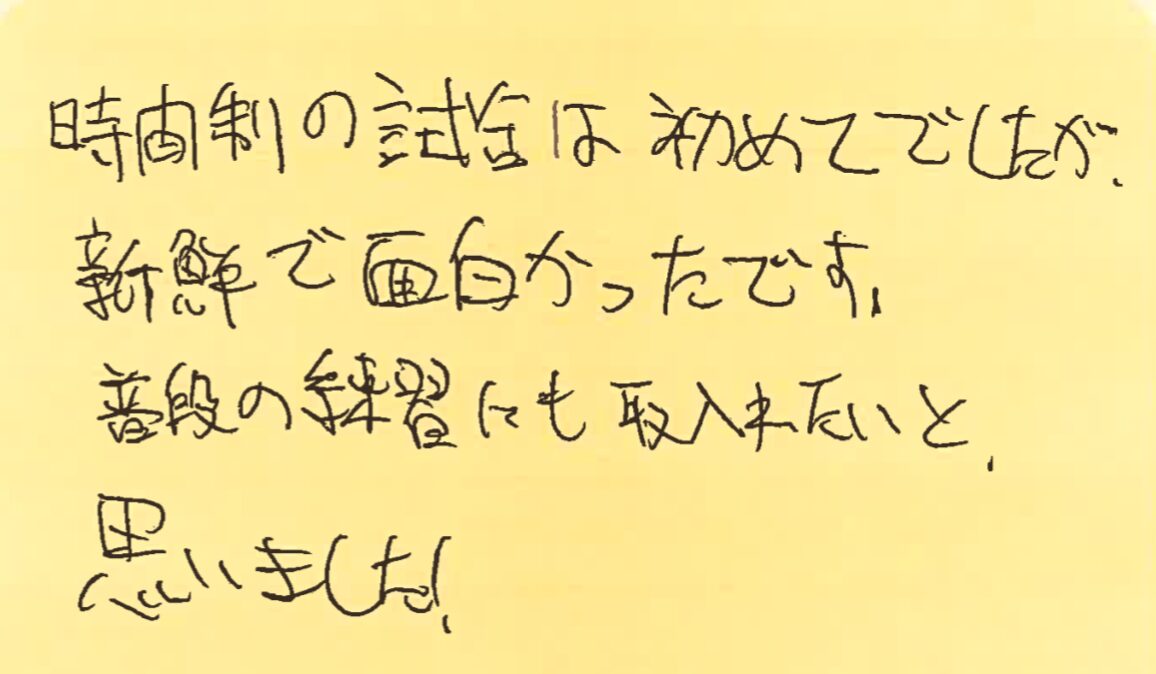 時間制の試合は初めてでしたが、
新鮮で面白かったです。
普段の練習にも取入れたいと、
思いました!